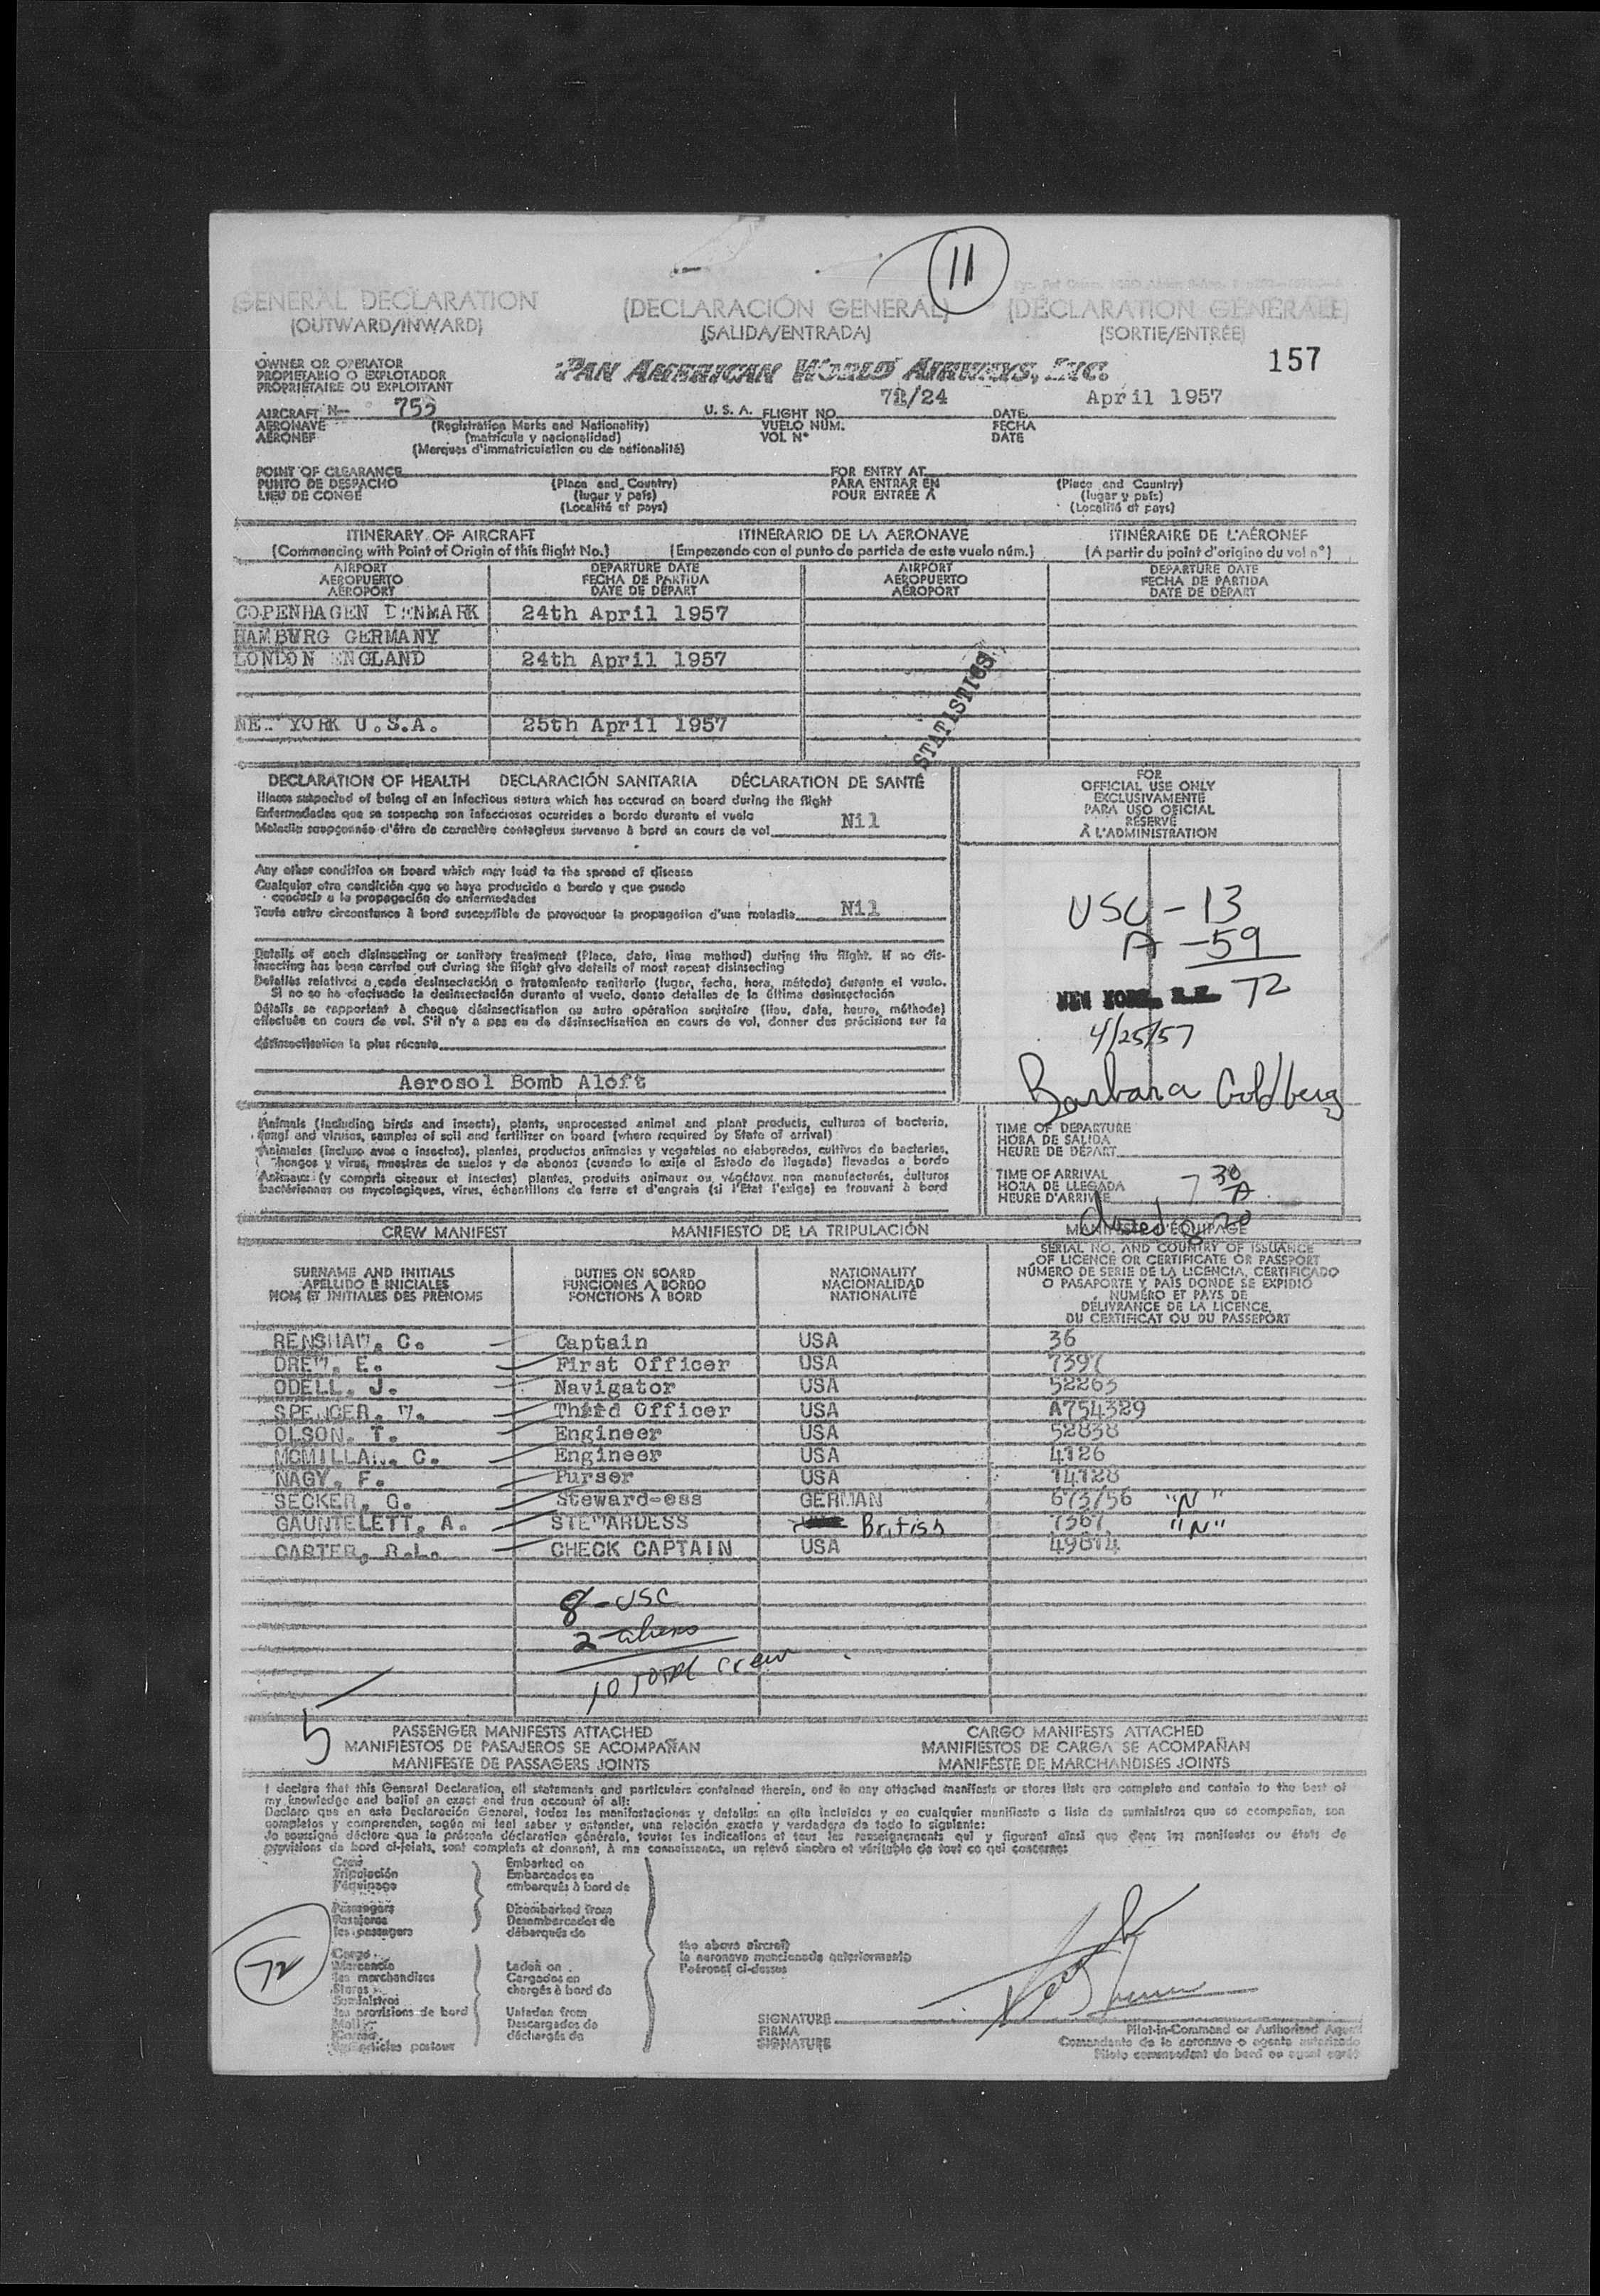 11
GENERAL DECLARATION (DECLARACIÓN GENERAL) (DÉCLARATION GÉNÉRALE)
(OUTWARD/INWARD) (SALIDA/ENTRADA) (SORTIE/ENTRÉE)
157
OWNER OR OPERATOR
PROPIETARIO O EXPLOTADOR
PROPRIÉTAIRE OU EXPLOITANT
PAN AMERICAN WORLD AIRWAYS, INC.
72/24 April 1957
AIRCRAFT N- 755 U. S. A. FLIGHT NO. DATE
AERONAVE (Registration Marks and Nationality) VUELO NÚM. FECHA
AÉRONEF (matrícula y nacionalidad) VOL Nº DATE
(Marques d'immatriculation ou de nationalité)
POINT OF CLEARANCE FOR ENTRY AT
PUNTO DE DESPACHO (Place and Country) PARA ENTRAR EN (Place and Country)
LIEU DE CONGÉ (lugar y país) POUR ENTRÉE À (lugar y país)
(Localité et pays) (Localité et pays)
ITINERARY OF AIRCRAFT ITINERARIO DE LA AERONAVE ITINÉRAIRE DE L'AÉRONEF
(Commencing with Point of Origin of this flight No.) (Empezando con el punto de partida de este vuelo núm.) (A partir du point d'origine du vol nº)
AIRPORT DEPARTURE DATE AIRPORT DEPARTURE DATE
AEROPUERTO FECHA DE PARTIDA AEROPUERTO FECHA DE PARTIDA
AÉROPORT DATE DE DÉPART AÉROPORT DATE DE DÉPART
COPENHAGEN DENMARK 24th April 1957
HAMBURG GERMANY
LONDON ENGLAND 24th April 1957
STATISTICS
NEW YORK U.S.A. 25th April 1957
DECLARATION OF HEALTH DECLARACIÓN SANITARIA DÉCLARATION DE SANTÉ
Illness suspected of being of an infectious nature which has occured on board during the flight
Enfermedades que se sospecha son infecciosas ocurridas a bordo durante el vuelo
Maladie soupçonnée d'être de caractère contagieux survenue à bord en cours de vol Nil
Any other condition on board which may lead to the spread of disease
Cualquier otra condición que se haya producido a bordo y que pueda
conducir a la propagación de enfermedades
Toute autre circonstance à bord susceptible de provoquer la propagation d'une maladie Nil
Details of each disinsecting or sanitary treatment (Place, date, time method) during the flight. If no dis-
insecting has been carried out during the flight give details of most recent disinsecting
Detalles relativos a cada desinsectación o tratamiento sanitario (lugar, fecha, hora, método) durante el vuelo.
Si no se ha efectuado la desinsectación durante el vuelo, dense detalles de la última desinsectación
Détails se rapportant à chaque désinsectisation ou autre opération sanitaire (lieu, date, heure, méthode)
effectuée en cours de vol. S'il n'y a pas eu de désinsectisation en cours de vol, donner des précisions sur la
désinsectisation la plus récente
Aerosol Bomb Aloft
FOR
OFFICIAL USE ONLY
EXCLUSIVAMENTE
PARA USO OFICIAL
RÉSERVÉ
À L'ADMINISTRATION
USC - 13
A - 59
NEW YORK, N.Y. 72
4/25/57
Barbara Goldberg
Animals (including birds and insects), plants, unprocessed animal and plant products, cultures of bacteria,
fungi and viruses, samples of soil and fertilizer on board (where required by State of arrival)
Animales (incluso aves e insectos), plantas, productos animales y vegetales no elaborados, cultivos de bacterias,
hongos y virus, muestras de suelos y de abonos (cuando lo exija el Estado de llegada) llevados a bordo
Animaux (y compris oiseaux et insectes) plantes, produits animaux ou végétaux non manufacturés, cultures
bactériennes ou mycologiques, virus, échantillons de terre et d'engrais (si l'Etat l'exige) se trouvant à bord
TIME OF DEPARTURE
HORA DE SALIDA
HEURE DE DÉPART
TIME OF ARRIVAL
HORA DE LLEGADA 7 30 A
HEURE D'ARRIVÉE
CREW MANIFEST MANIFIESTO DE LA TRIPULACIÓN MANIFESTE D'ÉQUIPAGE
SURNAME AND INITIALS
APELLIDO E INICIALES
NOM ET INITIALES DES PRÉNOMS
DUTIES ON BOARD
FUNCIONES A BORDO
FONCTIONS À BORD
NATIONALITY
NACIONALIDAD
NATIONALITÉ
SERIAL NO. AND COUNTRY OF ISSUANCE
OF LICENCE OR CERTIFICATE OR PASSPORT
NÚMERO DE SERIE DE LA LICENCIA, CERTIFICADO
O PASAPORTE Y PAÍS DONDE SE EXPIDIÓ
NUMÉRO ET PAYS DE
DÉLIVRANCE DE LA LICENCE,
DU CERTIFICAT OU DU PASSEPORT
RENSHAW, C. Captain USA 36
DREW, E. First Officer USA 7397
ODELL, J. Navigator USA 52263
SPENCER, W. Third Officer USA A754329
OLSON, T. Engineer USA 52838
MCMILLAN, C. Engineer USA 4126
NAGY, F. Purser USA 14128
SECKER, G. Steward-ess GERMAN 673/56 "N"
GAUNTELETT, A. STEWARDESS British 7367 "N"
CARTER, R.L. CHECK CAPTAIN USA 49814
8 - USC
2 - aliens
10 TOTAL crew
5
PASSENGER MANIFESTS ATTACHED CARGO MANIFESTS ATTACHED
MANIFIESTOS DE PASAJEROS SE ACOMPAÑAN MANIFIESTOS DE CARGA SE ACOMPAÑAN
MANIFESTE DE PASSAGERS JOINTS MANIFESTE DE MARCHANDISES JOINTS
I declare that this General Declaration, all statements and particulars contained therein, and in any attached manifests or stores lists are complete and contain to the best of
my knowledge and belief an exact and true account of all:
Declaro que en esta Declaración General, todas las manifestaciones y detalles en ella incluidos y en cualquier manifiesto o lista de suministros que se acompañan, son
completos y comprenden, según mi leal saber y entender, una relación exacta y verdadera de todo lo siguiente:
Je soussigné déclare que la présente déclaration générale, toutes les indications et tous les renseignements qui y figurent ainsi que dans les manifestes ou états de
provisions de bord ci-joints, sont complets et donnent, à ma connaissance, un relevé sincère et véritable de tout ce qui concerne:
Crew
Tripulación
l'équipage
Embarked on
Embarcados en
embarqués à bord de
Passengers
Pasajeros
les passagers
Disembarked from
Desembarcados de
débarqués de
72
Cargo
Mercancía
les marchandises
Stores
Suministros
les provisions de bord
Laden on
Cargados en
chargés à bord de
Unladen from
Descargados de
déchargés de
the above aircraft
la aeronave mencionada anteriormente
l'aéronef ci-dessus
SIGNATURE
FIRMA
SIGNATURE
Pilot-in-Command or Authorised Agent
Comandante de la aeronave o agente autorizado
Pilote commandant de bord ou agent agréé